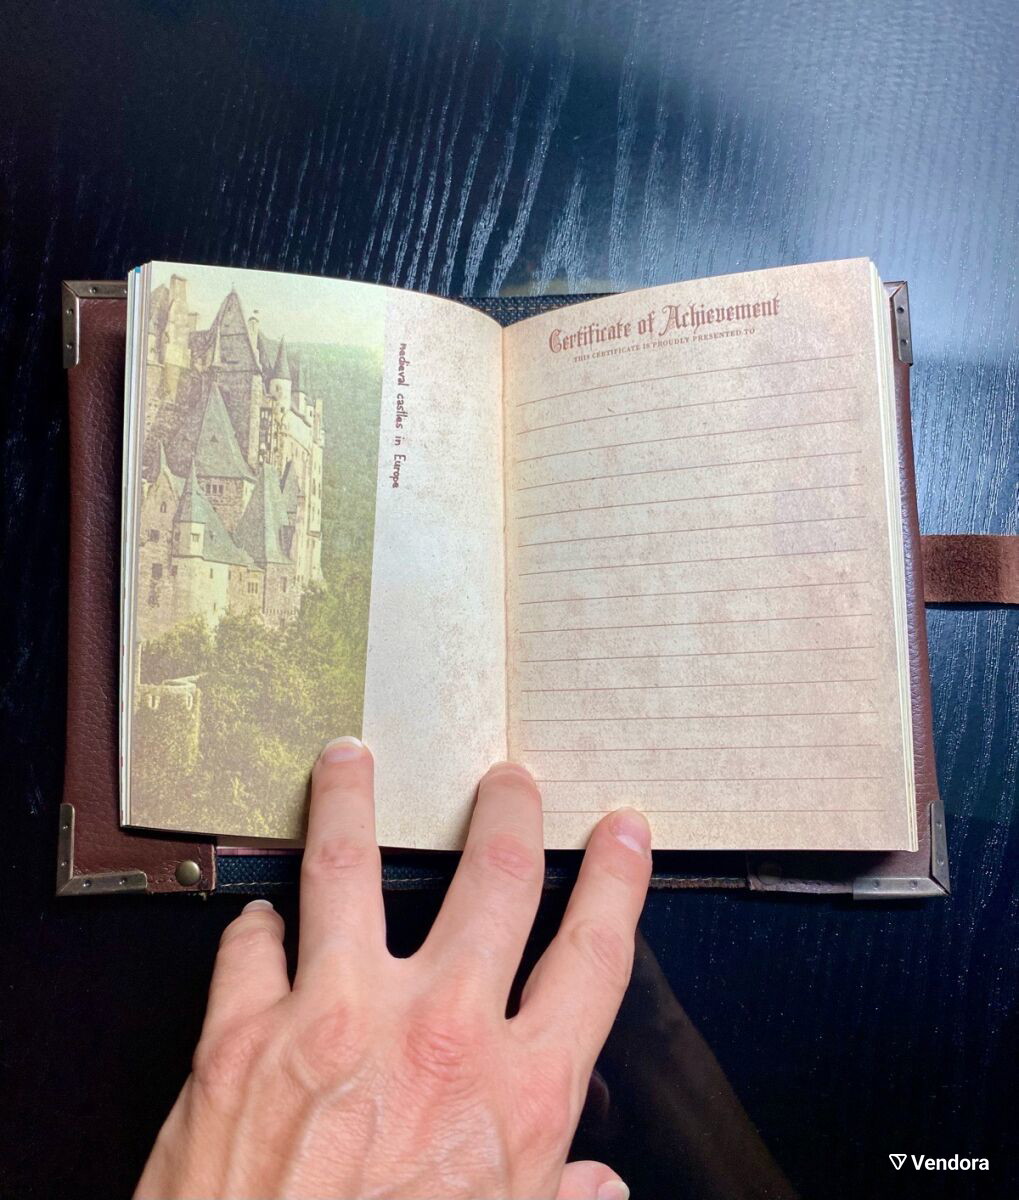 medieval castles in Europe
Certificate of Achievement
THIS CERTIFICATE IS PROUDLY PRESENTED TO
Vendora